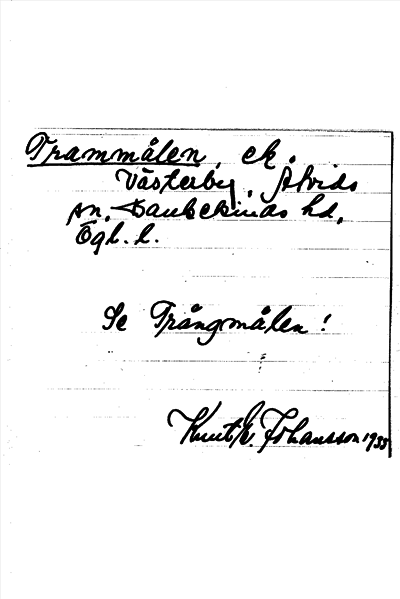 Trammålen, ek.
Västerby, Åtvids
sn, Bankekinds hd,
Ögl. l.
Se Trångmålen!
Knut E. Johansson 1935